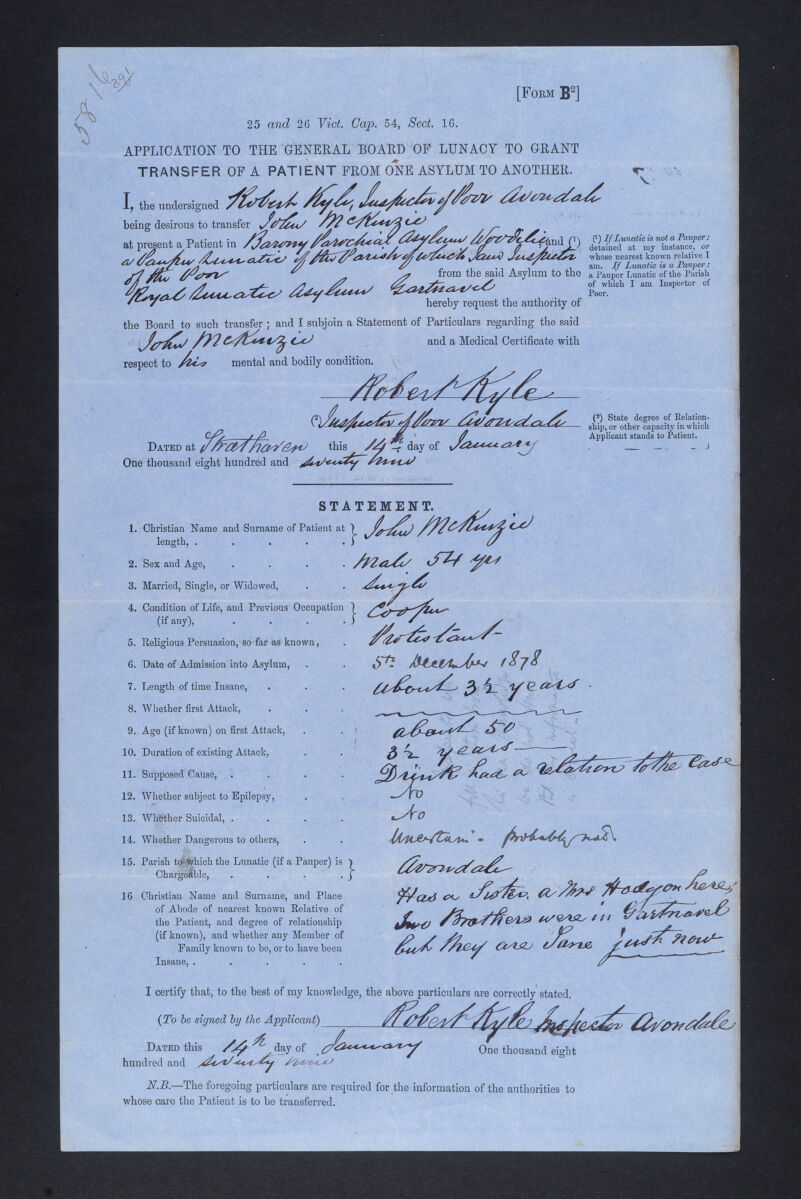 5816
391
[Form B²]
25 and 26 Vict. Cap. 54, Sect. 16.
APPLICATION TO THE GENERAL BOARD OF LUNACY TO GRANT
TRANSFER OF A PATIENT FROM ONE ASYLUM TO ANOTHER.
I, the undersigned Robert Kyle, Inspector of Poor Avondale
being desirous to transfer John McKinzie
at present a Patient in Barony Parochial Asylum Woodilie and (¹)
a Pauper Lunatic of the Parish of which I am Inspector
of the Poor from the said Asylum to the
Royal Lunatic Asylum Gartnavel
hereby request the authority of
the Board to such transfer; and I subjoin a Statement of Particulars regarding the said
John McKinzie and a Medical Certificate with
respect to his mental and bodily condition.
(¹) If Lunatic is not a Pauper:
detained at my instance, or
whose nearest known relative I
am. If Lunatic is a Pauper:
a Pauper Lunatic of the Parish
of which I am Inspector of
Poor.
Robert Kyle
(²) Inspector of Poor Avondale
(²) State degree of Relation-
ship, or other capacity in which
Applicant stands to Patient.
Dated at Strathaven this 14th day of January
One thousand eight hundred and seventy nine
STATEMENT.
1. Christian Name and Surname of Patient at
length, . . . . . } John McKinzie
2. Sex and Age, . . . . Male 54 yrs
3. Married, Single, or Widowed, . . Single
4. Condition of Life, and Previous Occupation
(if any), . . . . } Cooper
5. Religious Persuasion, so far as known, . . Protestant
6. Date of Admission into Asylum, . . 5th December 1878
7. Length of time Insane, . . . about 3½ years
8. Whether first Attack, . . .
9. Age (if known) on first Attack, . . about 50
10. Duration of existing Attack, . . 3½ years
11. Supposed Cause, . . . . Drink had a relation to the case
12. Whether subject to Epilepsy, . . No
13. Whether Suicidal, . . . . No
14. Whether Dangerous to others, . . Uncertain - probably not.
15. Parish to which the Lunatic (if a Pauper) is
Chargeable, . . . . } Avondale
16 Christian Name and Surname, and Place Has a Sister, a Mrs Hodgson here,
of Abode of nearest known Relative of
the Patient, and degree of relationship Two Brothers were in Gartnavel
(if known), and whether any Member of
Family known to be, or to have been but they are Sane just now
Insane, . . . . .
I certify that, to the best of my knowledge, the above particulars are correctly stated.
(To be signed by the Applicant) Robert Kyle Inspector Avondale
Dated this 14th day of January One thousand eight
hundred and seventy nine
N.B.—The foregoing particulars are required for the information of the authorities to
whose care the Patient is to be transferred.